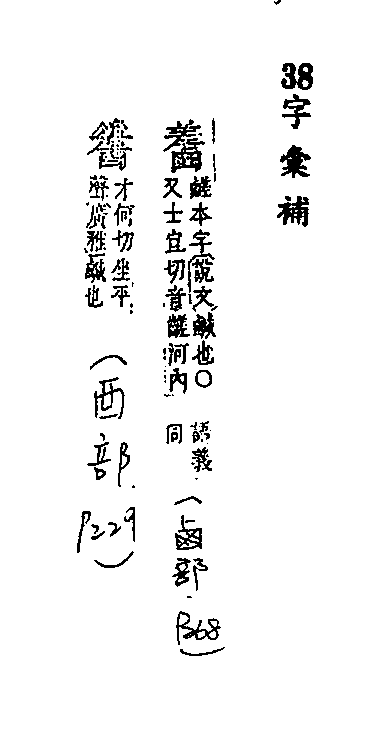 38字彙補
鹺本字說文鹹也〇
又士宜切音齹河內
語義
同
(鹵部.
才何切坐平
聲廣雅鹹也
(西部.
P229)